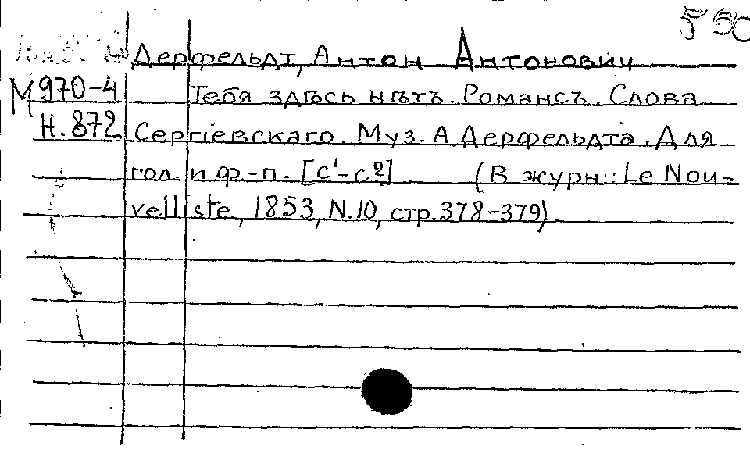 550
Дерфельдт, Антон Антонович
М 970-4 Тебя здѣсь нѣтъ. Романсъ. Слова
Н. 872 Сергіевскаго. Муз. А Дерфельдта. Для
гол. и ф-п. [c¹-c²] (В журн.: Le Nou-
velliste, 1853, N.10, стр. 378-379)